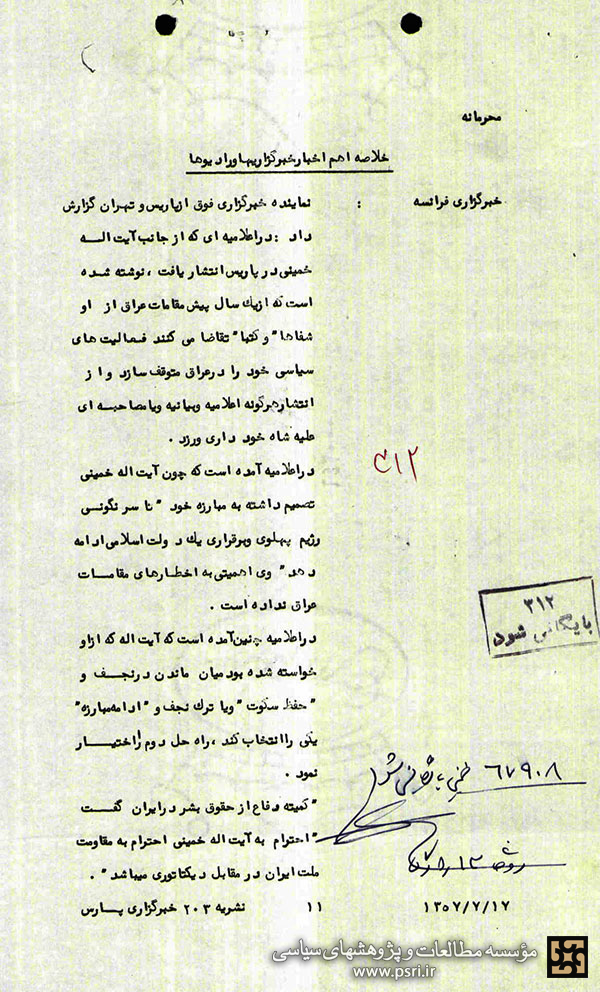 محرمانه
خلاصه اهم اخبار خبرگزاریها و رادیوها
خبرگزاری فرانسه : نماینده خبرگزاری فوق از پاریس و تهران گزارش
داد : در اعلامیه ای که از جانب آیت اله
خمینی در پاریس انتشار یافت ، نوشته شده
است که از یک سال پیش مقامات عراق از او
شفاها" و کتبا" تقاضا می کنند فعالیت های
سیاسی خود را در عراق متوقف سازد و از
انتشار هرگونه اعلامیه وبیانیه ویا مصاحبه ای
علیه شاه خود داری ورزد .
در اعلامیه آمده است که چون آیت اله خمینی
تصمیم داشته به مبارزه خود " تا سرنگونی
رژیم پهلوی وبرقراری یک دولت اسلامی ادامه
دهد " وی اهمیتی به اخطارهای مقامات
عراق نداده است .
در اعلامیه چنین آمده است که آیت اله که از او
خواسته شده بود میان ماندن در نجف و
"حفظ سکوت" ویا ترک نجف و "ادامه مبارزه"
یکی را انتخاب کند ، راه حل دوم را اختیار
نمود .
"کمیته دفاع از حقوق بشر در ایران گفت
"احترام به آیت اله خمینی احترام به مقاومت
ملت ایران در مقابل دیکتاتوری میباشد" .
۱۳۵۷/۷/۱۷ ۱۱ نشریه ۲۰۳ خبرگزاری پارس
۳۱۲
۳۱۲
بایگانی شود
۶۷۹۰۸
مؤسسه مطالعات و پژوهشهای سیاسی
www.psri.ir